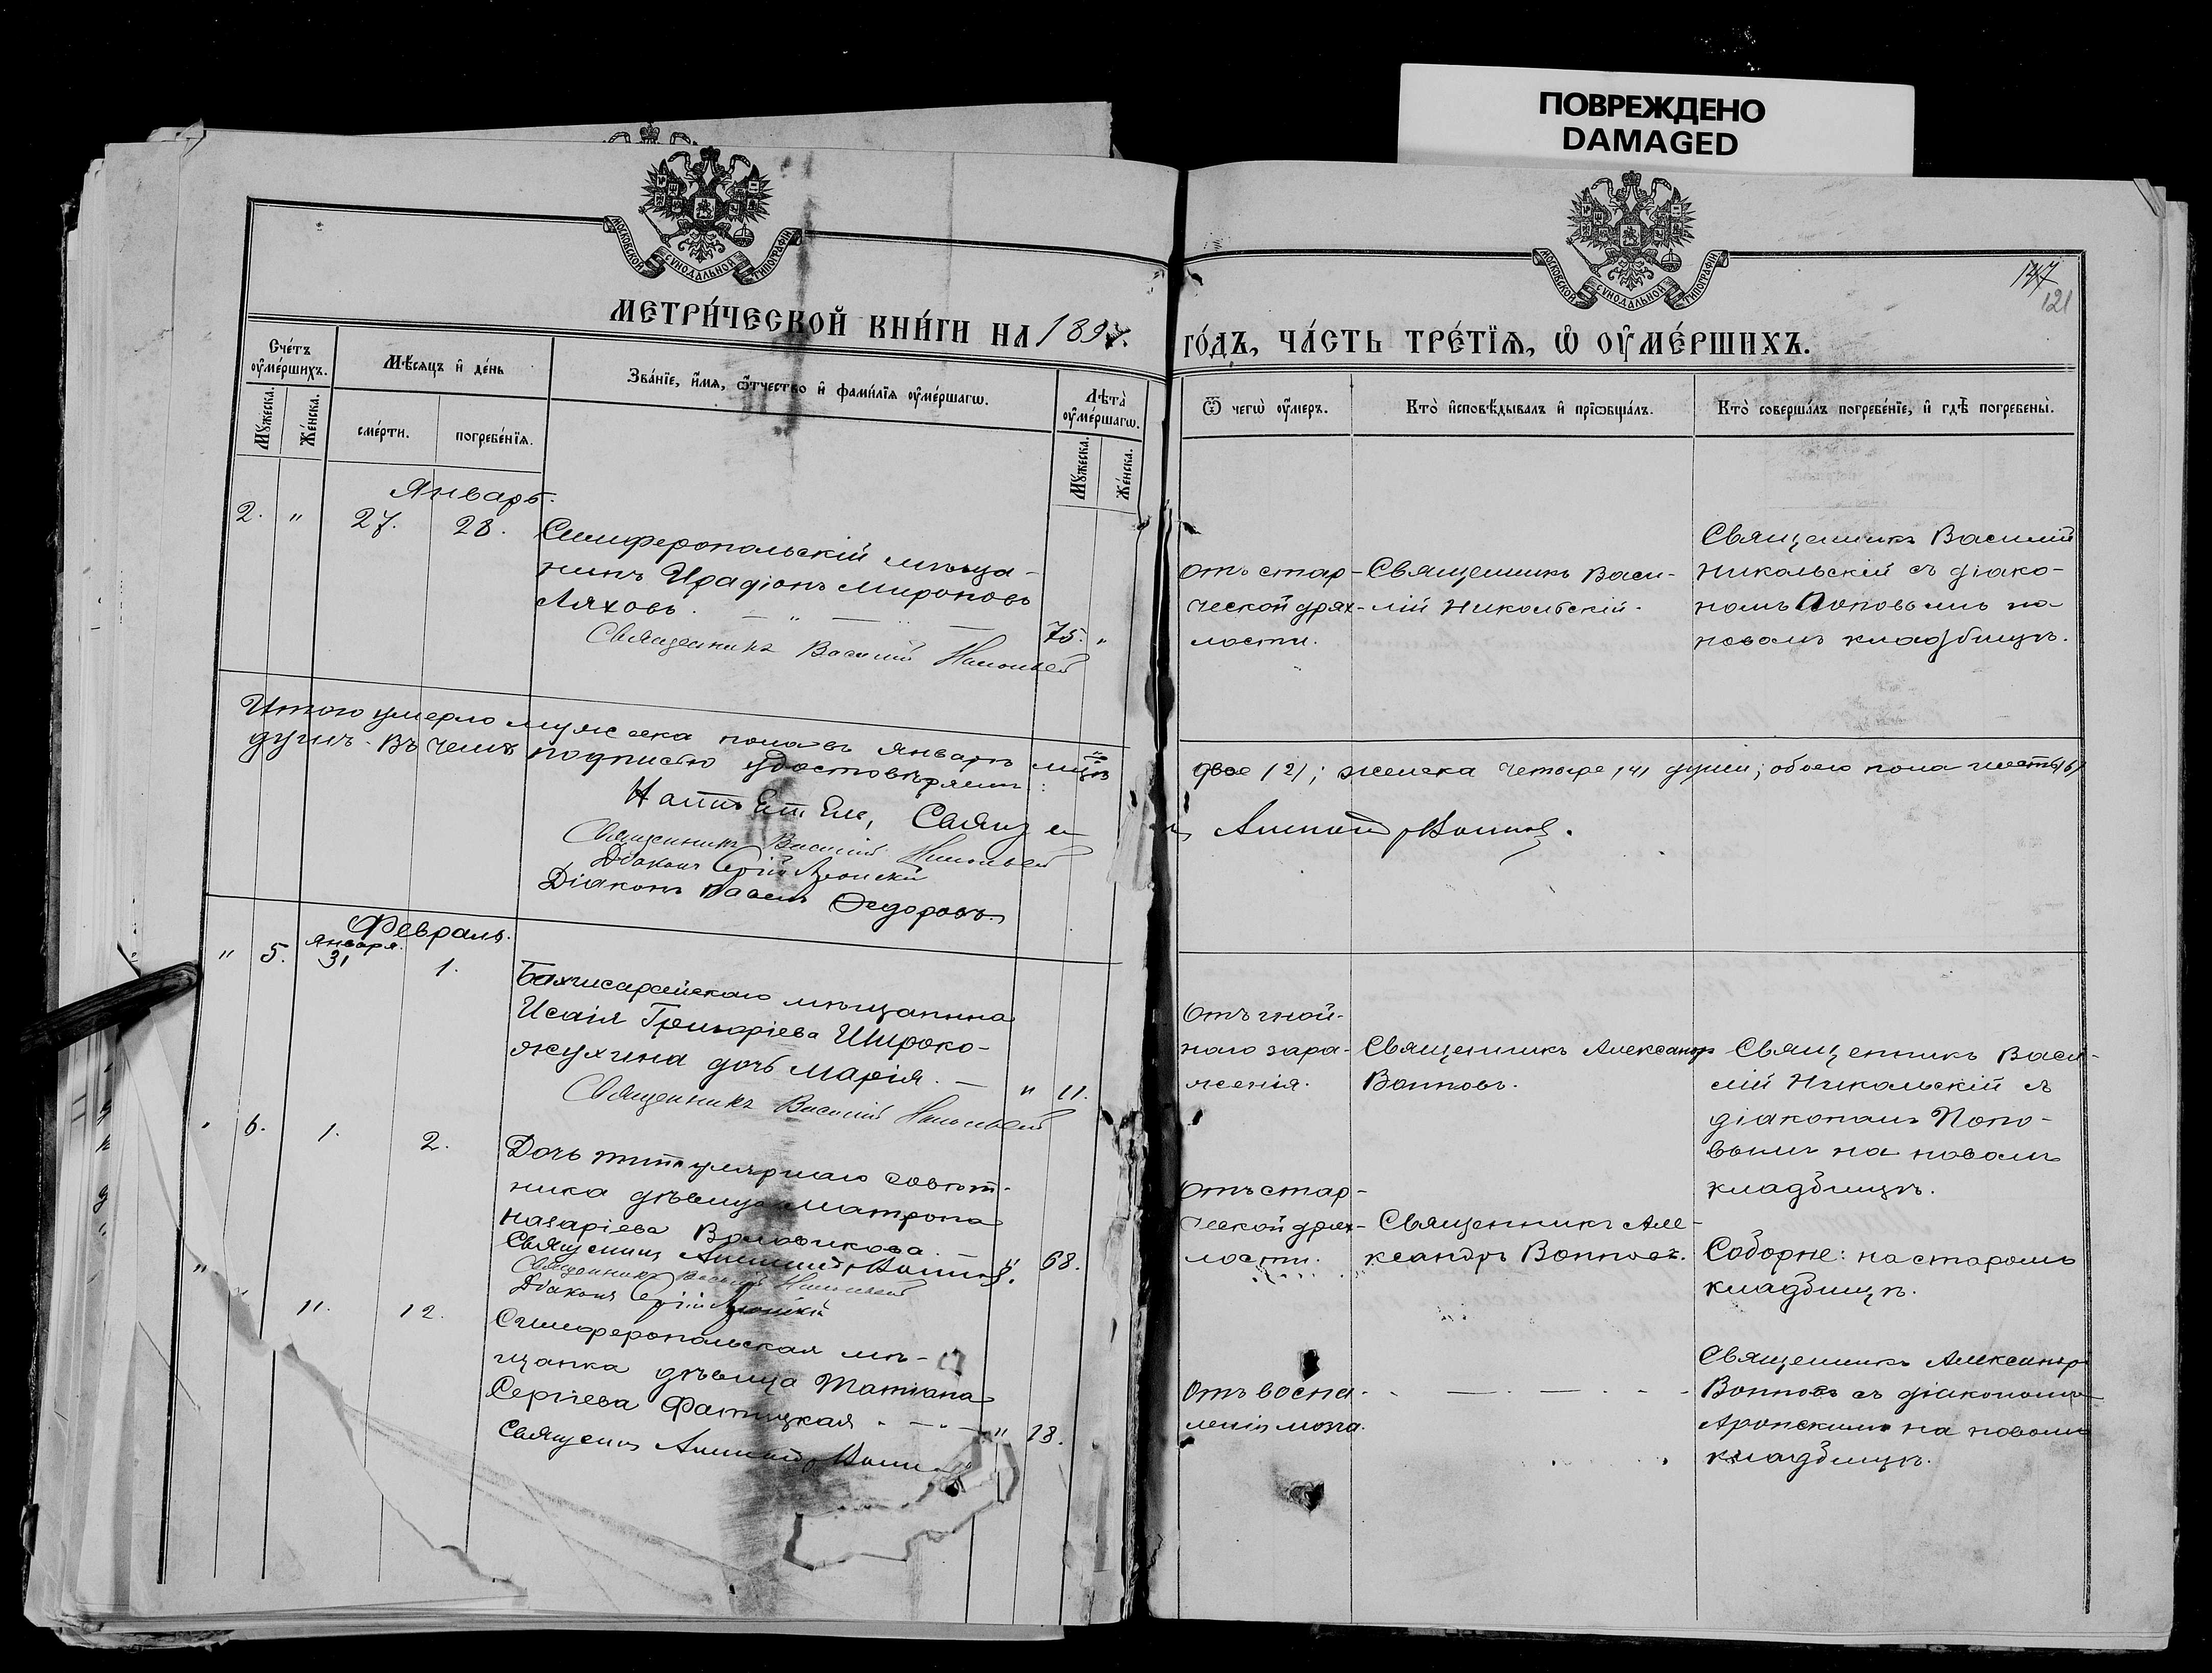 ПОВРЕЖДЕНО
DAMAGED
МОСКОВСКОЙ СУНОДАЛЬНОЙ ТИПОГРАФІИ
МОСКОВСКОЙ СУНОДАЛЬНОЙ ТИПОГРАФІИ
121
МЕТРИ́ЧЕСКОЙ КНИ́ГИ НА 1897.
ГО́ДЪ, ЧА́СТЬ ТРЕ́ТІѦ, Ѡ҆ ОУ҆МЕ́РШИХЪ.
Сче́тъ оу҆ме́ршихъ.
Мѣ́сѧцъ и҆ де́нь
Зва́нїе, и҆́мѧ, ѻ҆́тчество и҆ фами́лїѧ оу҆ме́ршагѡ.
Лѣта̀ оу҆ме́ршагѡ.
Ѿ чегѡ̀ оу҆́меръ.
Кто̀ и҆сповѣ́дывалъ и҆ прїѡбща́лъ.
Кто̀ соверша́лъ погребе́нїе, и҆ гдѣ̀ погребены̀.
Мꙋ́жеска.
Же́нска.
сме́рти.
погребе́нїѧ.
Мꙋ́жеска.
Же́нска.
Январь.
2. " 27. 28.
Симферопольскій мѣща-
нинъ Иродіонъ Мироновъ
Ляховъ. 75. "
Священникъ Василій Никольскій
Отъ стар-
ческой дрях-
лости.
Священникъ Васи-
лій Никольскій.
Священникъ Василій
Никольскій съ діако-
номъ Поповымъ на
новомъ кладбищѣ.
Итого умерло мужеска пола въ Январѣ мцѣ двое (2); женска четыре (4) души; обоего пола шесть (6)
душъ. Въ чемъ подписью удостовѣряемъ:
Священникъ Василій Никольскій
Діаконъ Сергій Аронскій
Діаконъ Павелъ Ѳедоровъ
Февраль.
" 5. января 31 1.
Бахчисарайскаго мѣщанина
Исаія Григоріева Широко-
жухина дочь Марія. " 11.
Священникъ Василій Никольскій
Отъ гной-
наго зара-
женія.
Священникъ Александръ
Вонновъ.
Священникъ Васи-
лій Никольскій съ
діакономъ Попо-
вымъ на новомъ
кладбищѣ.
" 6. 1. 2.
Дочь титулярнаго совѣт-
ника дѣвица Матрона
Назаріева Воловикова. " 68.
Священникъ Василій Никольскій
Діаконъ Сергій Аронскій
Отъ стар-
ческой дрях-
лости.
Священникъ Але-
ксандръ Вонновъ.
Соборне: на старомъ
кладбищѣ.
" 11. 12.
Симферопольская мѣ-
щанка дѣвица Татіана
Сергіева Фатицкая " 28.
Отъ воспа-
ленія мозга.
Священникъ Александръ
Вонновъ съ діакономъ
Аронскимъ на новомъ
кладбищѣ.